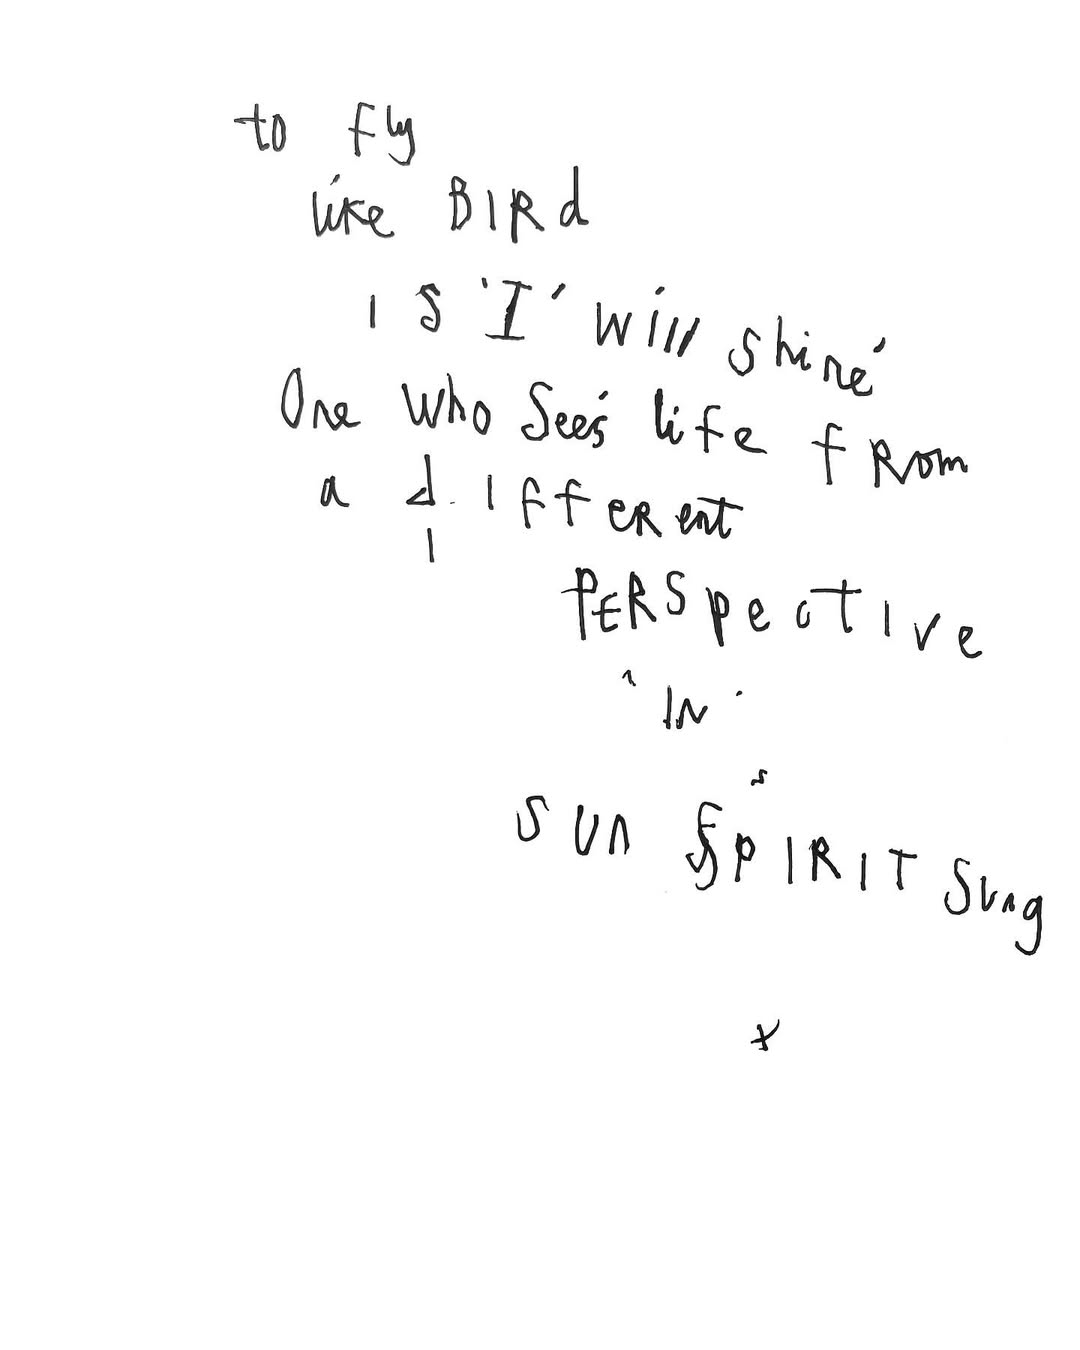 to fly
like BIRd
IS 'I' will shine'
One who See's life fRom
a d.IffeRent
PERSpective
'IN'
SUn SPIRIT Sung
x